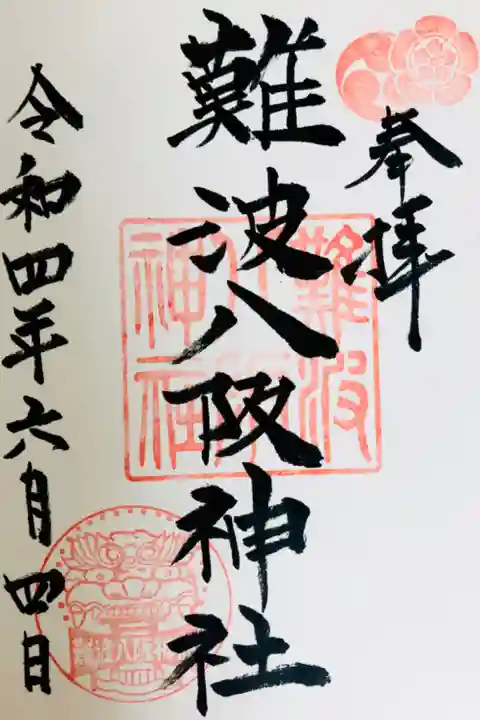 奉拝
難波八阪神社
令和四年六月四日
難波
八阪
神社